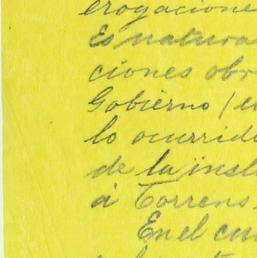 erogacione
Es natura
ciones obr
Gobierno /
lo ocurrid
de la insl
á Torrens.
En el cu